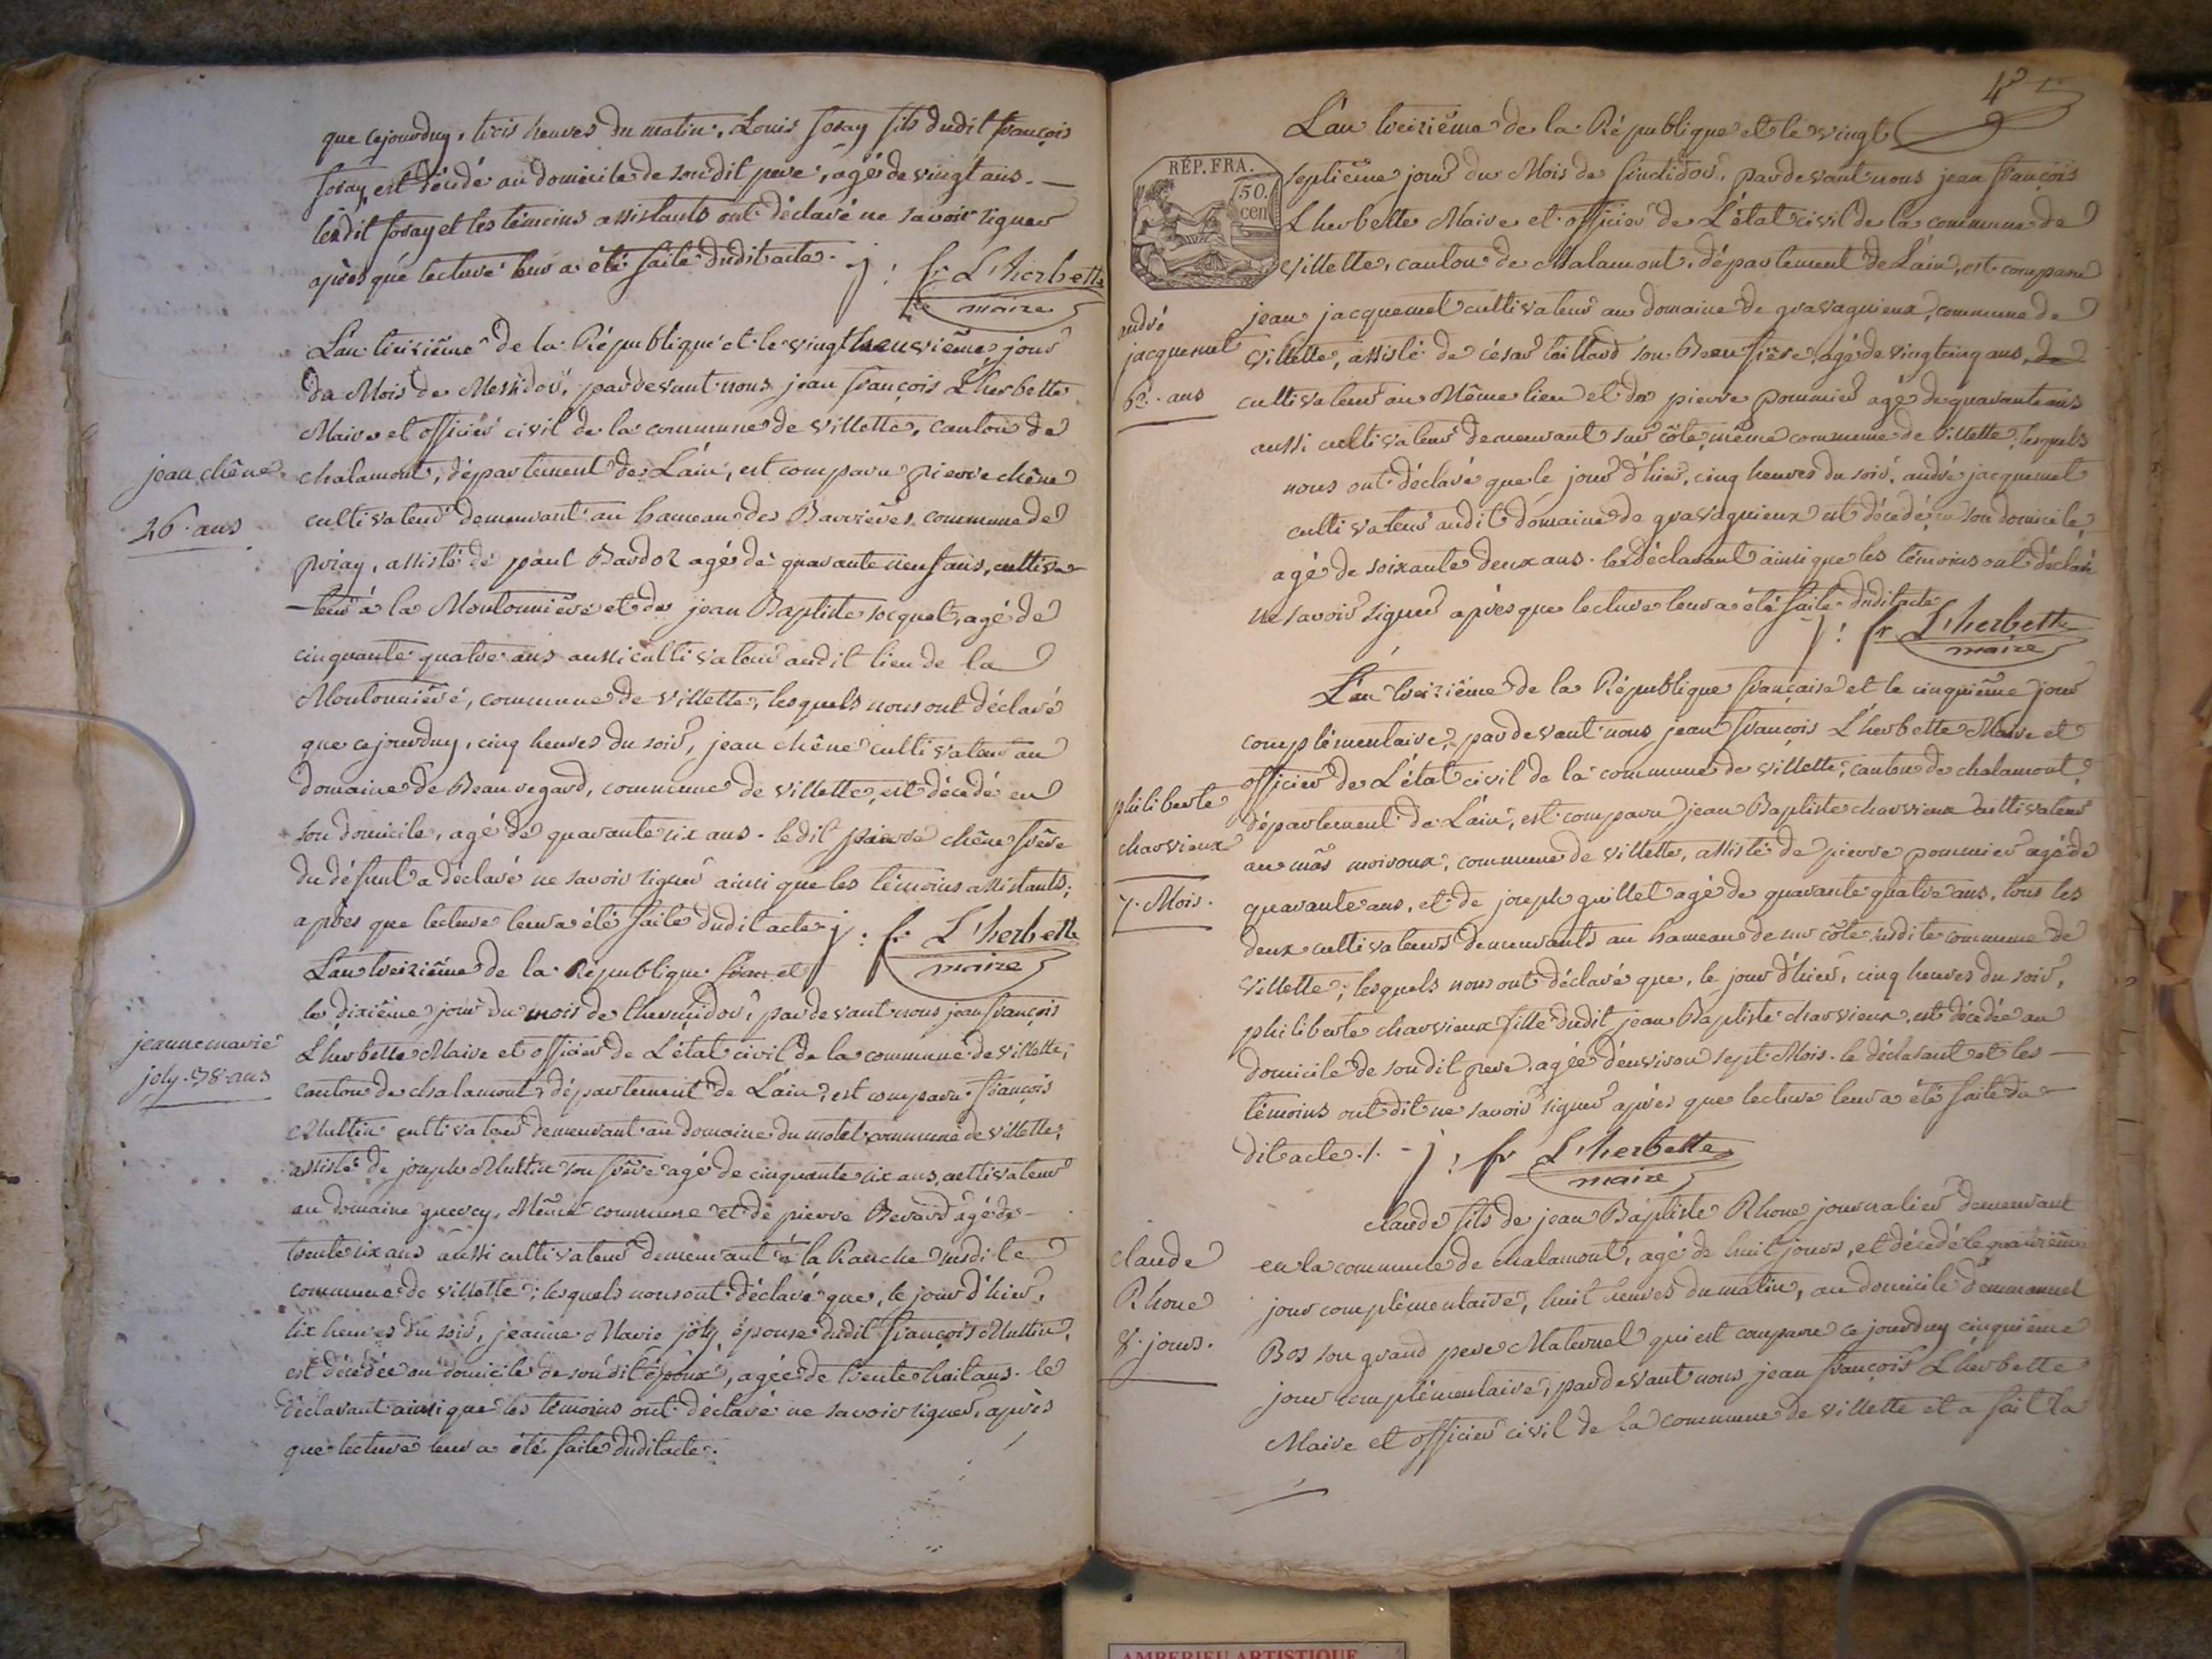 que cejourduy, trois heures du matin, Louis foray fils dudit françois
foray, est décédé au domicile de son dit pere, agé de vingt ans.
ledit foray et les témoins assistants ont déclaré ne savoir signer
après que lecture leur a été faite dudit acte. j: fr L'herbette
maire
L'an treizième de la République et le vingt neuvième jour
du Mois de Messidor, pardevant nous jean françois L'herbette
Maire et officier civil de la commune de villette, canton de
jean chêne
chalamont, département de L'ain, est comparu pierre chêne
46 ans
cultivateur demeurant au hameau des Barrières commune de
priay, assisté de paul Bardoz agé de quarante neuf ans, cultiva-
-teur à la Moutonnière et de jean Baptiste socquet, agé de
cinquante quatre ans aussi cultivateur audit lieu de la
Moutonnière, commune de villette, lesquels nous ont déclaré
que cejourduy, cinq heures du soir, jean chêne cultivateur au
domaine de Beauregard, commune de villette, est décédé en
son domicile, agé de quarante six ans. ledit pierre chêne frère
du défunt a déclaré ne savoir signer ainsi que les témoins assistants;
après que lecture leur a été faite dudit acte j: fr L'herbette
maire
L'an treizième de la République et
le dixième jour du mois de thermidor, pardevant nous jean françois
jeanne marie
L'herbette Maire et officier de L'état civil de la commune de villette,
joly. 38 ans
canton de chalamont, département de L'ain, est comparu françois
Muttin cultivateur demeurant au domaine du motet commune de villette;
assisté de joseph Muttin son frère agé de cinquante six ans, cultivateur
au domaine guercy, Même commune et de pierre Berard agé de
trente six ans aussi cultivateur demeurant à la Ranche susdite
commune de villette; lesquels nous ont déclaré que, le jour d'hier,
six heures du soir, jeanne Marie joly épouse dudit françois Muttin,
est décédée au domicile de son dit époux, agée de trente huit ans. le
déclarant ainsi que les témoins ont déclaré ne savoir signer, après
que lecture leur a été faite dudit acte.
L'an treizième de la République et le vingt
REP. FRA.
50
cen
septième jour du Mois de fructidor, pardevant nous jean françois
L'herbette Maire et officier de L'état civil de la commune de
villette, canton de chalamont, département de L'ain, est comparu
andré
jean jacquemet cultivateur au domaine de gravagnieux, commune de
jacquemet
villette, assisté de césar taillard son Beau frère, agé de vingt cinq ans, de
62. ans
cultivateur au Même lieu et de pierre pommier agé de quarante ans
aussi cultivateur demeurant sur côte, même commune de villette, lesquels
nous ont déclaré que le jour d'hier, cinq heures du soir, andré jacquemet
cultivateur audit domaine de gravagnieux est décédé en son domicile,
agé de soixante deux ans. le déclarant ainsi que les témoins ont déclaré
ne savoir signer après que lecture leur a été faite dudit acte
j: fr L'herbette
maire
L'an treizième de la République française et le cinquième jour
complémentaire, pardevant nous jean françois L'herbette Maire et
officier de L'état civil de la commune de villette, canton de chalamont,
philiberte
département de L'ain, est comparu jean Baptiste charvieux cultivateur
charvieux
au mas moiroux, commune de villette, assisté de pierre pommier agé de
7. Mois.
quarante ans, et de joseph guillet agé de quarante quatre ans, tous les
deux cultivateurs demeurants au hameau de sur côte susdite commune de
villette; lesquels nous ont déclaré que, le jour d'hier, cinq heures du soir,
philiberte charvieux fille dudit jean Baptiste charvieux, est décédée au
domicile de son dit pere, agée d'environ sept Mois. le déclarant et les
témoins ont dit ne savoir signer après que lecture leur a été faite du
dit acte./. - j: fr L'herbette
maire
claude fils de jean Baptiste Rhone journalier demeurant
claude
en la commune de chalamont, agé de huit jours, et décédé le quatrième
Rhone
jour complémentaire, huit heures du matin, au domicile d'emmanuel
8. jours.
Bos son grand pere Maternel qui est comparu ce jourduy cinquième
jour complémentaire, pardevant nous jean françois L'herbette
Maire et officier civil de la commune de villette et a fait la
AMBERIEU ARTISTIQUE